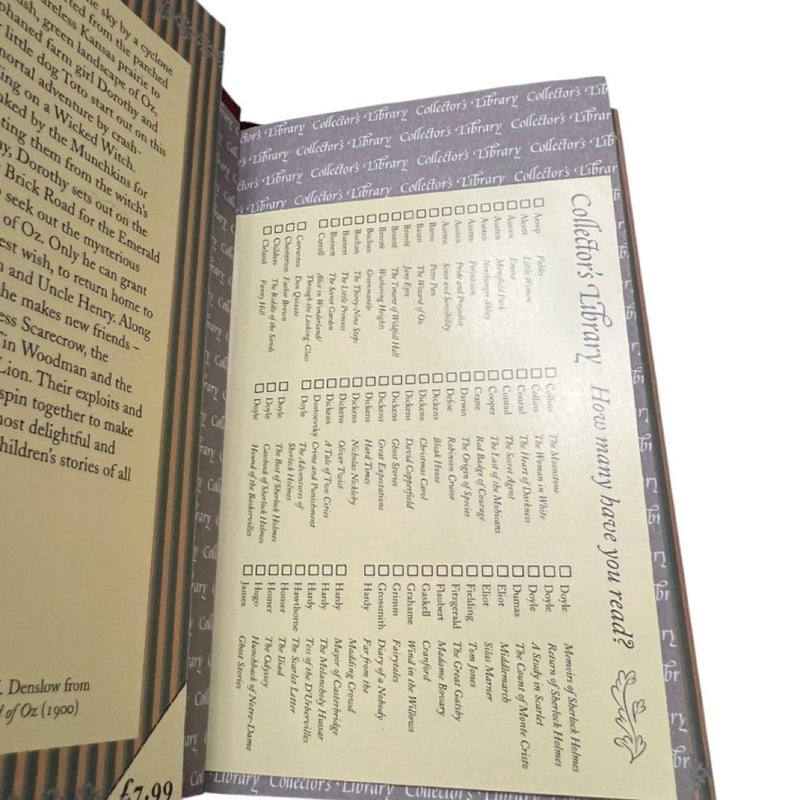 sky by a cyclone
ted from the parched
reless Kansas prairie to
sh, green landscape of Oz,
phaned farm girl Dorothy and
little dog Toto start out on this
mortal adventure by crash-
ing on a Wicked Witch.
nked by the Munchkins for
ting them from the witch's
y, Dorothy sets out on the
Brick Road for the Emerald
seek out the mysterious
of Oz. Only he can grant
est wish, to return home to
and Uncle Henry. Along
he makes new friends –
ess Scarecrow, the
in Woodman and the
Lion. Their exploits and
spin together to make
most delightful and
hildren's stories of all
Denslow from
of Oz (1900)
£7.99
Collector's Library Collector's Library Collector's Library
Collector's Library How many have you read?
Aesop Fables
Alcott Little Women
Austen Emma
Austen Mansfield Park
Austen Northanger Abbey
Austen Persuasion
Austen Pride and Prejudice
Austen Sense and Sensibility
Barrie Peter Pan
Baum The Wizard of Oz
Brontë Jane Eyre
Brontë The Tenant of Wildfell Hall
Brontë Wuthering Heights
Buchan Greenmantle
Buchan The Thirty-Nine Steps
Burnett The Little Princess
Burnett The Secret Garden
Carroll Alice in Wonderland/
Through the Looking-Glass
Cervantes Don Quixote
Chesterton Father Brown
Childers The Riddle of the Sands
Cleland Fanny Hill
Collins The Moonstone
Collins The Woman in White
Conrad The Heart of Darkness
Conrad The Secret Agent
Cooper The Last of the Mohicans
Crane Red Badge of Courage
Darwin The Origin of Species
Defoe Robinson Crusoe
Dickens Bleak House
Dickens Christmas Carol
Dickens David Copperfield
Dickens Ghost Stories
Dickens Great Expectations
Dickens Hard Times
Dickens Nicholas Nickleby
Dickens Oliver Twist
Dickens A Tale of Two Cities
Dostoevsky Crime and Punishment
Doyle The Adventures of
Sherlock Holmes
Doyle The Best of Sherlock Holmes
Doyle Casebook of Sherlock Holmes
Doyle Hound of the Baskervilles
Doyle Memoirs of Sherlock Holmes
Doyle Return of Sherlock Holmes
Doyle A Study in Scarlet
Dumas The Count of Monte Cristo
Eliot Middlemarch
Eliot Silas Marner
Fielding Tom Jones
Fitzgerald The Great Gatsby
Flaubert Madame Bovary
Gaskell Cranford
Grahame Wind in the Willows
Grimm Fairytales
Grossmith Diary of a Nobody
Hardy Far from the
Madding Crowd
Hardy Mayor of Casterbridge
Hardy The Melancholy Hussar
Hardy Tess of the D'Urbervilles
Hawthorne The Scarlet Letter
Homer The Iliad
Homer The Odyssey
Hugo Hunchback of Notre-Dame
James Ghost Stories